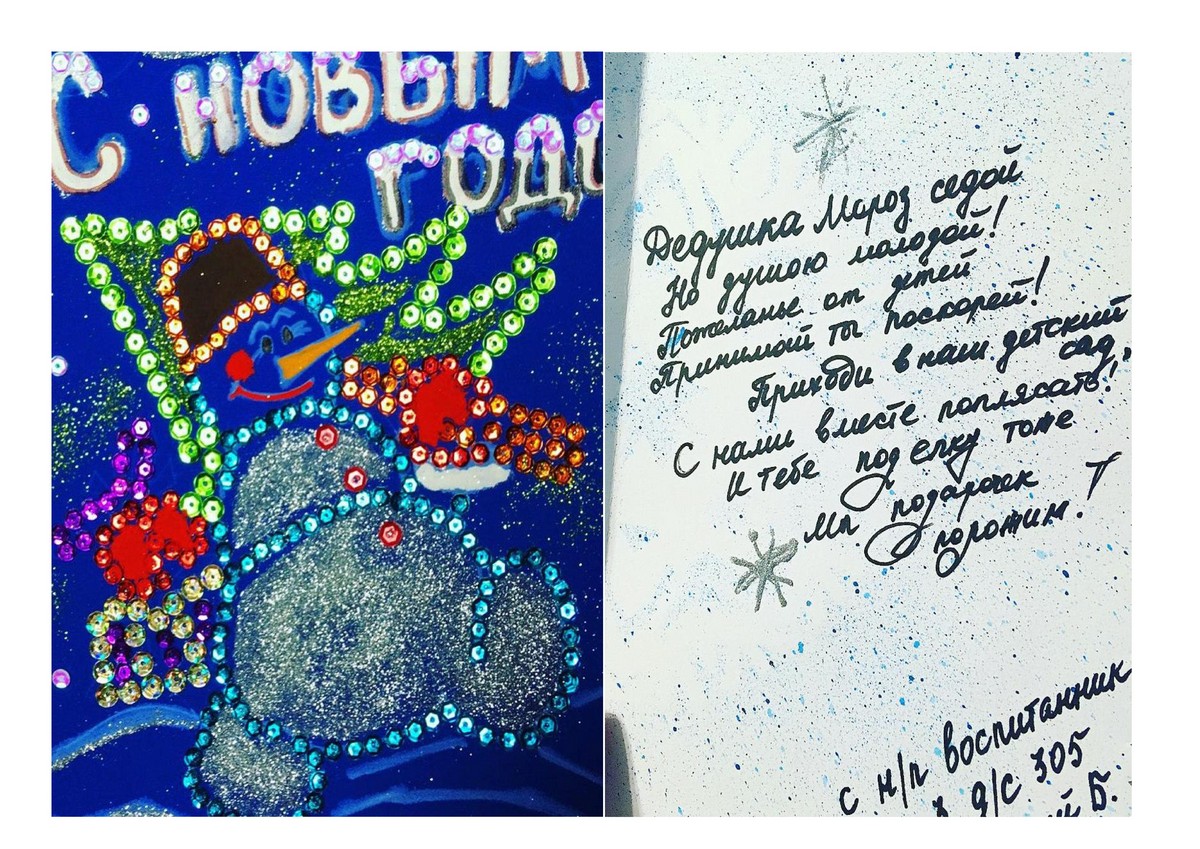 С НОВЫМ
ГОДО
Дедушка Мороз седой
Но душою молодой!
Пожеланье от детей
Принимай ты поскорей!
Приходи в наш детский
сад,
С нами вместе поплясать!
И тебе под ёлку тоже
Мы подарочек
положим!
с н/п воспитанник
д/с 305
й Б.